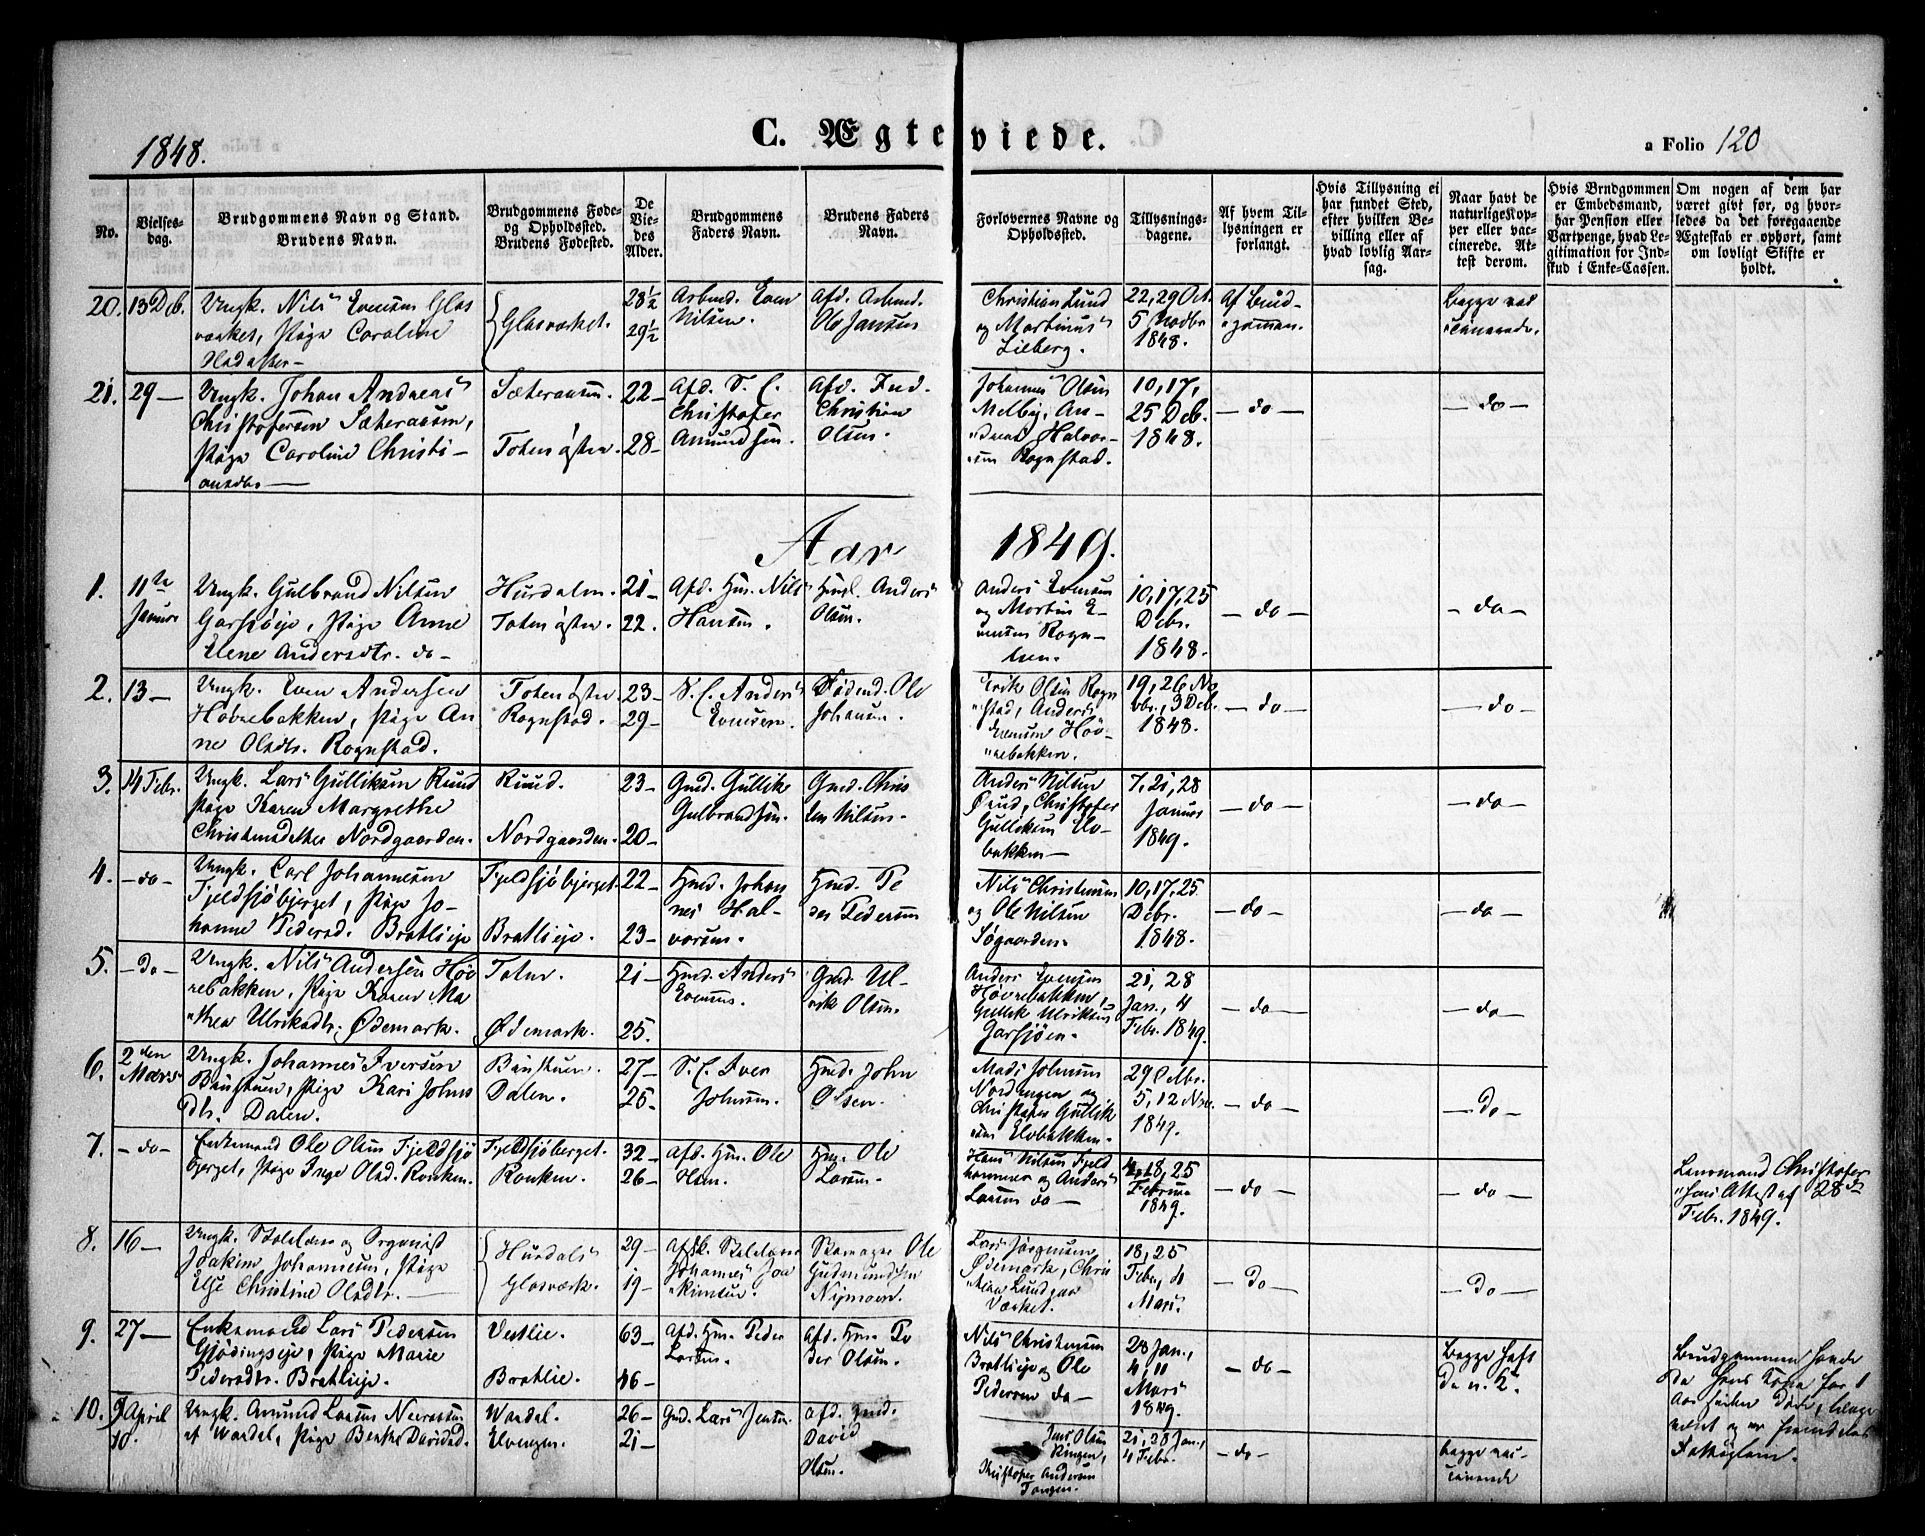 1848.
C. Ægteviede.
a Folio 120
No.
Vielses-
dag.
Brudgommens Navn og Stand.
Brudens Navn.
Brudgommens Føde-
og Opholdssted.
Brudens Fødested.
De
Vie-
des
Alder.
Brudgommens
Faders Navn.
Brudens Faders
Navn.
Forlovernes Navne og
Opholdssted.
Tillysnings-
dagene.
Af hvem Til-
lysningen er
forlangt.
Hvis Tillysning ei
har fundet Sted,
efter hvilken Be-
villing eller af
hvad lovlig Aar-
sag.
Naar havt de
naturlige Kop-
per eller vac-
cinerede. At-
test derom.
Hvis Brudgommen
er Embedsmand,
har Pension eller
Vartpenge, hvad Le-
gitimation for Ind-
skud i Enke-Cassen.
Om nogen af dem har
været givt før, og hvor-
ledes da det foregaaende
Ægteskab er ophørt, samt
om lovligt Skifte er
holdt.
20. 13 Deb.
Ungk. Nils Evensen Glas
værket, Pige Caroline
Olsdatter
Glasværket.
28½
29½
Arbmd. Even
Nilsen.
Afd. Arbmd.
Ole Jansen
Christian Lund
og Martinus
Lieberg.
22, 29 Oct.
5 Novbr
1848.
Af Brud-
gommen.
Begge vac
cinerede.
21. 29 —
Ungk. Johan Andreas
Christofersen Sæteraasen,
Pige Caroline Christi-
ansdtr.
Sæteraasen.
Toten østre.
22 —
28 —
Afd. S. C.
Christofer
Amundsen.
Afd. Ind.
Christian
Olsen.
Johannes Olsen
Melby, An-
dreas Halvor-
sen Rognstad.
10, 17,
25 Deb.
1848.
— do —
— do —
Aar 1849.
1. 11te
Januar
Ungk. Gulbrand Nilsen
Garsjøeje, Pige Anne
Elene Andersdtr. do —
Hurdalen.
Toten østre.
21 —
22.
Afd. Hm. Nils
Hansen.
Hmd. Anders
Olsen.
Anders Evensen
og Morten E-
vensen Rogn-
lien.
10, 17, 25
Debr.
1848.
— do —
— do —
2. 13 —
Ungk. Even Andersen
Høvrebakken, Pige An
ne Olsdtr. Rognstad.
Toten østre.
Rognstad.
23 —
29 —
S. C. Anders
Evensen.
Ole
Johansen.
Erik Olsen Rogn
stad, Anders
Evensen Høv-
rebakken.
19, 26 No
vbr., 3 Deb.
1848.
— do —
— do —
3. 14 Febr.
Ungk. Lars Gulliksen Ruud
Pige Karen Margrethe
Christensdatter Nordgaarden.
Ruud.
Nordgaarden.
23 —
20 —
Gmd. Gullik
Gulbrandsen.
Gmd. Chris
ten Nilsen.
Anders Nilsen
Ruud, Christofer
Gulliksen Elv-
bakken —
7, 21, 28
Januar
1849.
— do —
— do —
4. — do —
Ungk. Carl Johannesen
Fjeldsjøbjerget, Pige Jo-
hanne Pedersd. Bratlieje
Fjeldsjøbjerget.
Bratlieje.
22 —
23 —
Hmd. Johan
nes Hal-
vorsen.
Hmd. Pe
der Pedersen
Nils Christensen
og Ole Nilsen
Søgaarden.
10, 17, 25
Debr.
1848.
— do —
— do —
5. — Do —
Ungk. Nils Andersen Høv
rebakken, Pige Karen Ma
thea Ulriksdtr. Ødemark.
Toten.
Ødemark.
21 —
25.
Hmd. Anders
Evensen.
Gmd. Ul-
rik Olsen.
Anders Evensen
Høvrebakken,
Gullik Ulriksen
Garsjøen.
21, 28
Jan., 4
Febr. 1849.
— do —
— do —
6. 2den
Marts
Ungk. Johannes Iversen
Baustuen, Pige Kari Johns
dtr. Dalen.
Baustuen.
Dalen.
27 —
25 —
S. C. Iver
Johnsen.
Hmd. John
Olsen.
Mads Johnsen
Nordengen og
Christofer Gullik
sen Elvbakken.
29 Octbr.
5, 12 Nov.
1849.
— do —
— Do —
7. — do —
Enkemand Ole Olsen Fjeldsjø
bjerget, Pige Inge Olsd. Ronken.
Fjeldsjøberget.
Ronken.
32 —
26 —
Afd. Hm. Ole
Hm. Ole
Larsen.
Hans Nilsen Fjeld
hammer og Anders
Larsen do —
4, 18, 25
Februar
1849.
— do —
— do —
Lensmand Christofer
sens Attest af 28de
Febr. 1849.
8. 16 —
Ungk. Skolelærer og Organist
Joakim Johannesen, Pige
Else Christine Olsdtr.
Hurdals
Glasværk.
29 —
19 —
Afsk. Skolelærer
Johannes Joa
kimsen.
Ole
Gudmundsen
Nymoen.
Lars Jørgensen
Ødemark, Chris
tian Lund paa
Værket.
18, 25
Febr., 4
Mars.
— Do —
— Do —
9. 27 —
Enkemand Lars Pedersen
Gjødingseje, Pige Marie
Pedersdtr. Bratlieje.
Vestlie.
Bratlie.
63 —
46 —
Afd. Hm. Peder
Larsen.
Afd. Hm. Pe
der Olsen.
Nils Christensen
Bratlieje og Ole
Pedersen do —
28 Jan.,
4, 11
Mars
1849.
— do —
Begge haft
de n. K.
Brudgommen havde
da hans Kone for 1
Aar siden døde,
og
10. 9 April
10.
Ungk. Amund Larsen
af Wardal, Pige Berthe Davidsd.
Wardal.
Elvengen.
26 —
21 —
Gmd. Lars Jensen
Afd. Gmd.
David
Olsen.
Jens Olsen
Ringen,
Christofer Andersen
Tangen.
21, 28 Jan.,
4 Febr.
— do —
begge vac-
cinerede